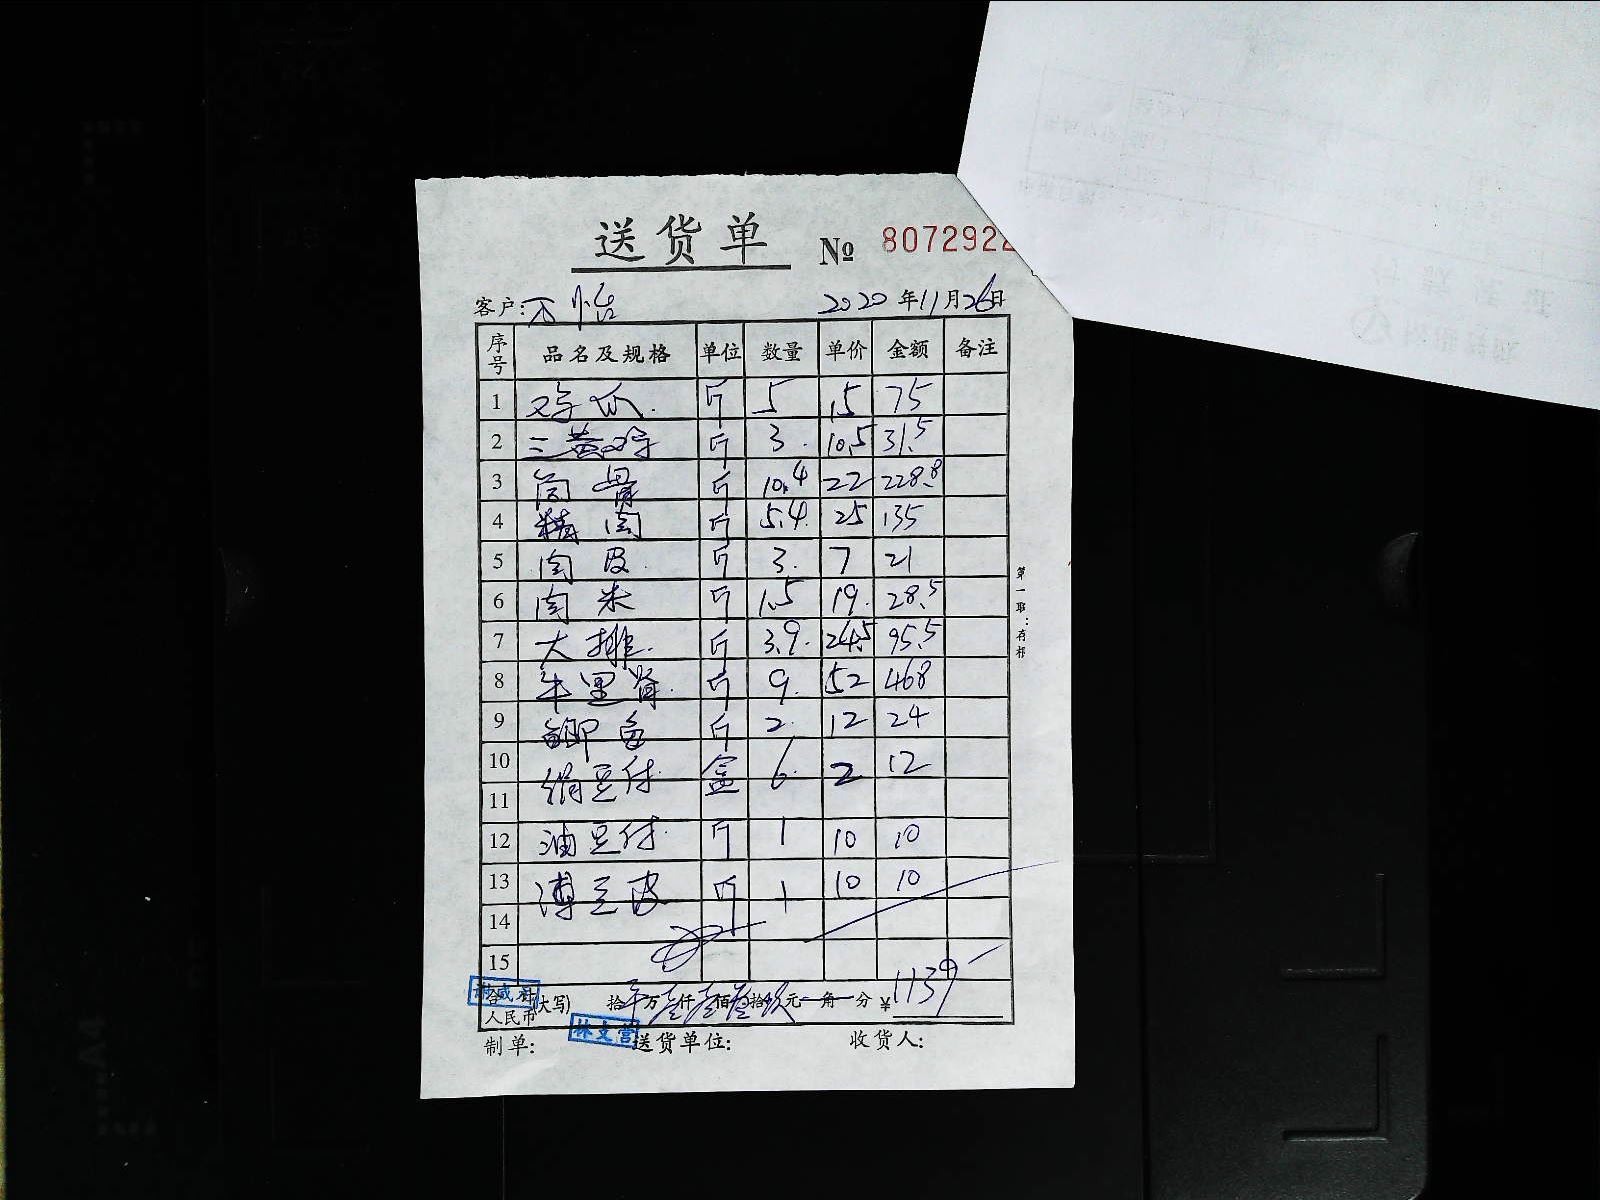 送货单 № 8072922
客户: 不怡 2020年11月26日
序号 品名及规格 单位 数量 单价 金额 备注
1 鸡爪 斤 5 15 75
2 三黄鸡 斤 3 10.5 31.5
3 筒骨 斤 10.4 22 228.8
4 精肉 斤 5.4 25 135
5 肉皮 斤 3 7 21
6 肉米 斤 1.5 19 28.5
7 大排 斤 3.9 24.5 95.5
8 牛里脊 斤 9 52 468
9 鲫鱼 斤 2 12 24
10 绢豆付 盒 6 2 12
11
12 油豆付 斤 1 10 10
13 薄豆皮 斤 1 10 10
14
15
合计人民币(大写) 拾 万壹仟壹佰叁拾玖元 角 分 ¥1139
制单: 林支营 送货单位: 收货人:
第一联:存根